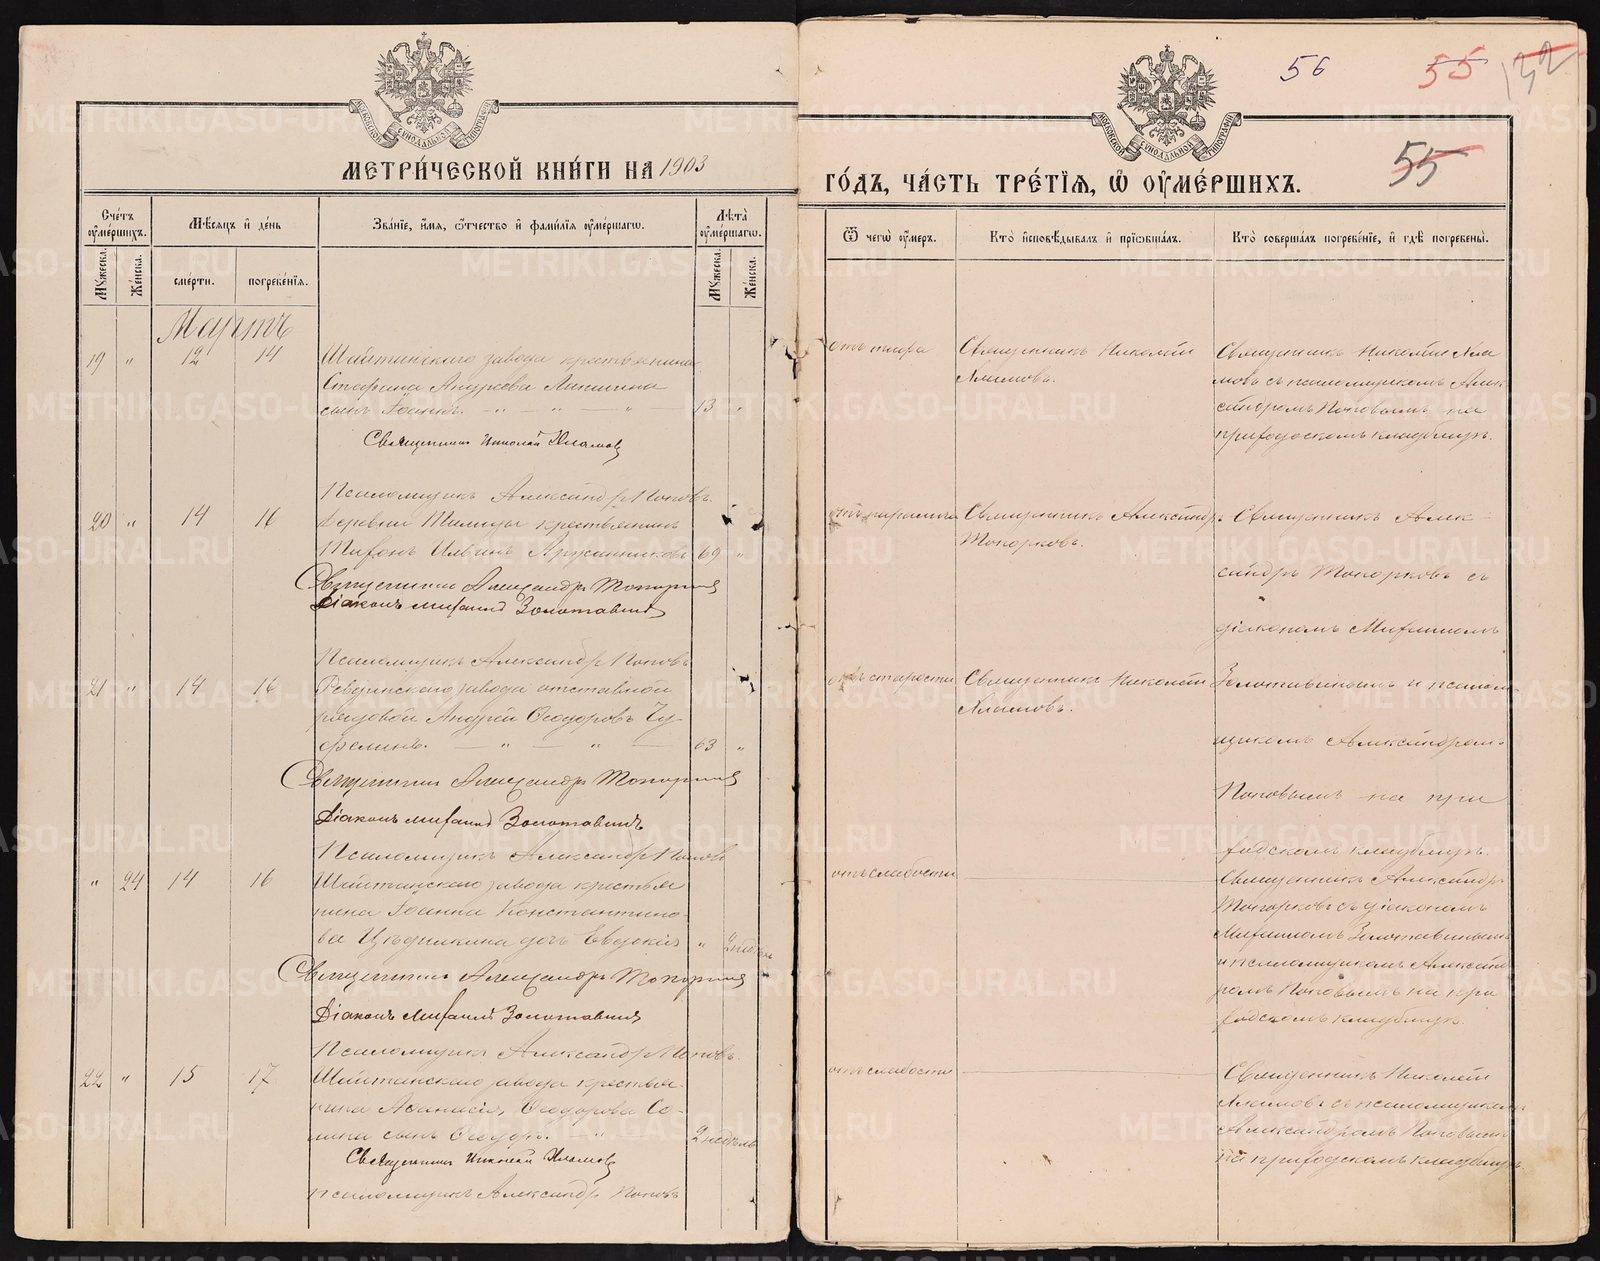 МОСКОВСКОЙ СѴНОДАЛЬНОЙ ТИПОГРАФІИ
МЕТРИ́ЧЕСКОЙ КНИ́ГИ НА 1903
Сче́тъ оу҆ме́ршихъ.
Мѣ́сяцъ и҆ де́нь
Зва́нїе, и҆́мя, ѻ҆́тчество и҆ фами́лїя оу҆ме́ршагѡ.
Лѣ́та оу҆ме́ршагѡ.
Мꙋ́жеска.
Же́нска.
сме́рти.
погребе́нїя.
Мꙋ́жеска.
Же́нска.
Мартъ
19 " 12 14 Шайтанскаго завода крестьянина
Андреева
сынъ Іоаннъ. — " — " — " — 13 "
Священникъ Николай Хламов
Псаломщикъ Александръ Поповъ.
20 " 14 16 Деревни Талицы крестьянинъ
Ильинъ 69 "
Священникъ Александръ Топорков
Діаконъ Михаилъ Золотавинъ
Псаломщикъ Александръ Поповъ
21 " 14 16 Ревдинскаго завода отставной
рядовой Андрей Ѳеодоровъ Чу-
фелинъ. — " — " — 63 "
Священникъ Александръ Топорков
Діаконъ Михаилъ Золотавинъ
Псаломщикъ Александръ Поповъ
" 24 14 16 Шайтанскаго завода крестья
нина Іоанна Константино-
ва дочь Евдокія " 2 недѣль
Священникъ Александръ Топорков
Діаконъ Михаилъ Золотавинъ
Псаломщикъ Александръ Поповъ.
22 " 15 17 Шайтанскаго завода крестья-
нина Аѳанасія Ѳеодорова Со-
нина сынъ Ѳеодоръ. " 2 недѣль
Священникъ Николай Хламов
Псаломщикъ Александръ Поповъ
56 55
55
МОСКОВСКОЙ СѴНОДАЛЬНОЙ ТИПОГРАФІИ
ГО́ДЪ, ЧА́СТЬ ТРЕ́ТЇѦ, Ѽ ОУ҆МЕ́РШИХЪ.
Ѿ чегѡ̀ оу҆́меръ.
Кто̀ и҆сповѣ́дывалъ и҆ прїѡбща́лъ.
Кто̀ соверша́лъ погребе́нїе, и҆ гдѣ̀ погребены̀.
отъ тифа
Священникъ Николай
Хламовъ.
Священникъ Николай Хла
мовъ съ псаломщикомъ Алек
сандромъ Поповымъ на
приходскомъ кладбищѣ.
отъ паралича
Священникъ Александръ
Топорковъ.
Священникъ Алек-
сандръ Топорковъ съ
діакономъ Михаиломъ
отъ старости
Священникъ Николай
Хламовъ.
Золотавинымъ и псалом-
щикомъ Александромъ
Поповымъ на при
ходскомъ кладбищѣ.
отъ слабости
Священникъ Александръ
Топорковъ съ діакономъ
Михаиломъ Золотавинымъ
и псаломщикомъ Александ
ромъ Поповымъ на при
ходскомъ кладбищѣ.
отъ слабости
Священникъ Николай
Хламовъ съ псаломщикомъ
Александромъ Поповымъ
на приходскомъ кладбищѣ.
METRIKI.GASO-URAL.RU